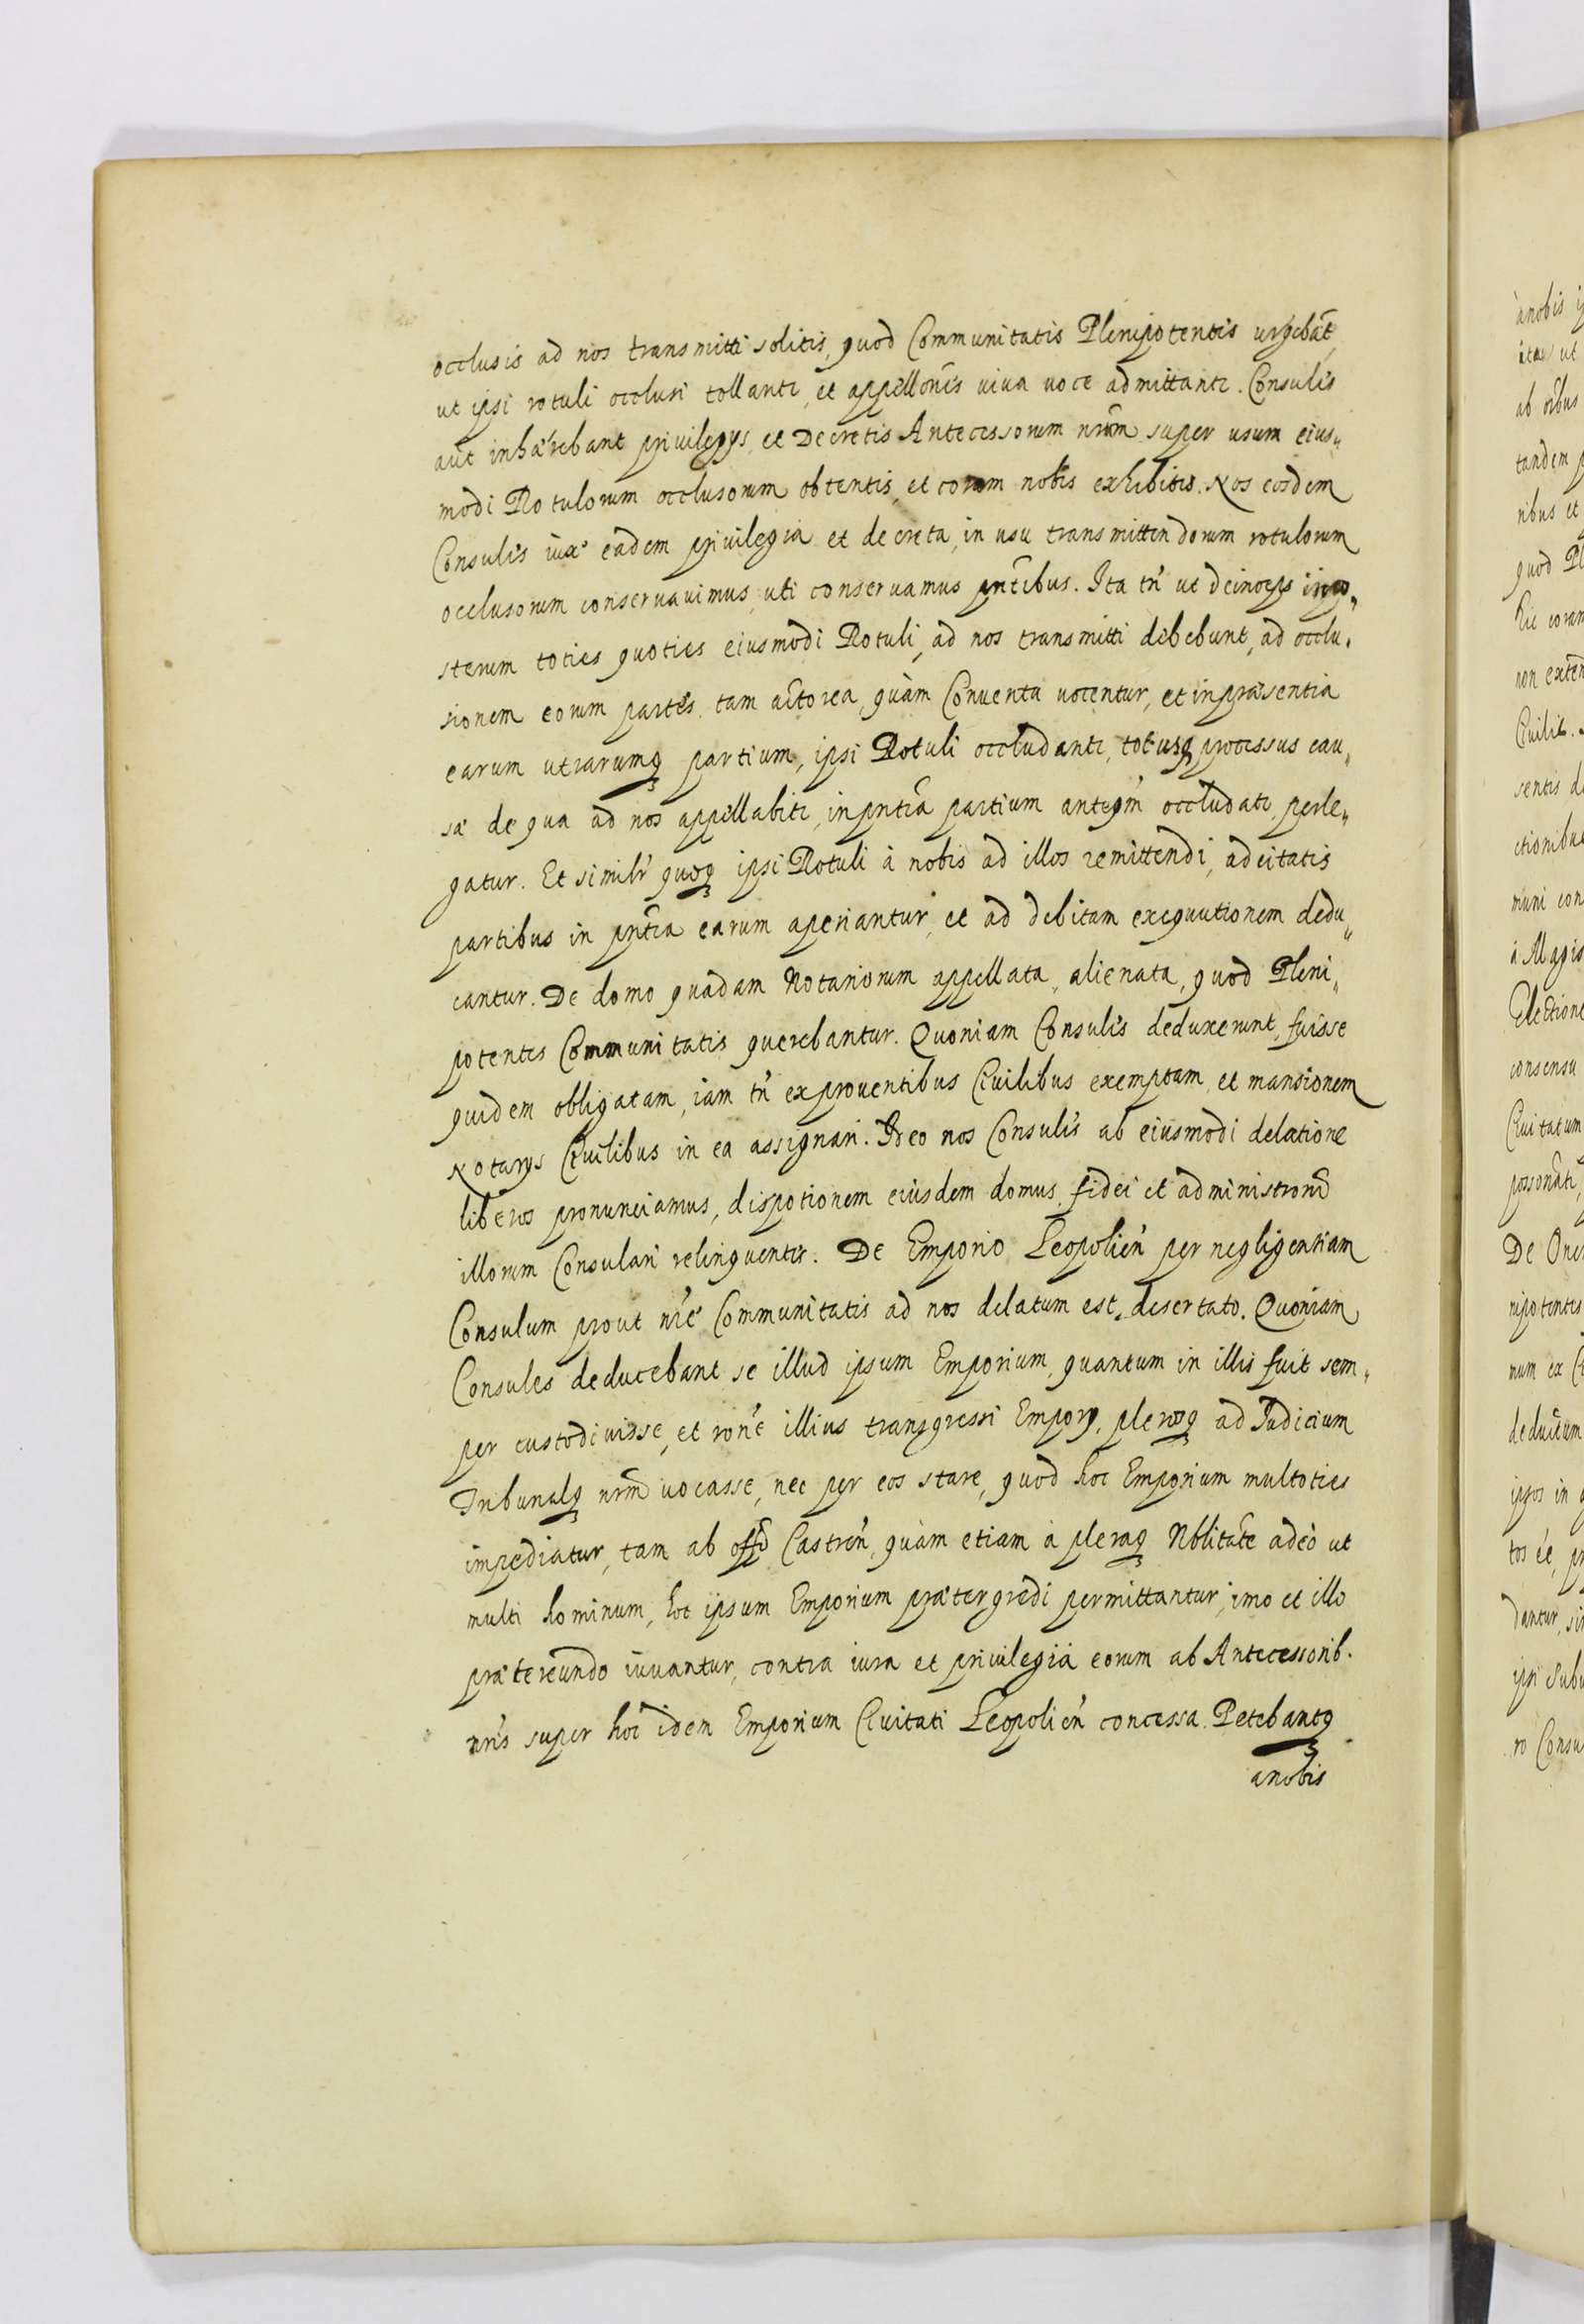 occlusis ad nos transmitti solitis, quod Communitatis Plenipotentes urgebāt,
ut ipsi rotuli occlusi tollantr, et appellōnes viva voce admittantr. Consules
aūt inhærebant privilegys, et Decretis Antecessorum nr̄orum super usum eius„
modi Rotulorum occlusorum obtentis, et coram nobis exhibitis. Nos eosdem
Consules iuxᵃ eadem privilegia et decreta, in usu transmittendorum rotulorum
occlusorum conservavimus, uti conservamus pn̄tibus. Ita tn̄ ut deinceps inpo„
sterum toties quoties eiusmodi Rotuli, ad nos transmitti debebunt, ad occlu„
sionem eorum partes tam actorea, quàm Conventa vocentur, et in præsentia
earum utrarumq partium, ipsi Rotuli occludantr, totusq processus cau„
sæ de qua ad nos appellabitr, in pn̄tia partium anteqm̄ occludatr, perle„
gatur. Et similr̄ quoq ipsi Rotuli à nobis ad illos remittendi, adcitatis
partibus in pn̄tia earum aperiantur, et ad debitam exequutionem dedu„
cantur. De domo quadam Notariorum appellata, alienata, quod Pleni„
potentes Communitatis querebantur. Quoniam Consules deduxerunt, fuisse
quidem obligatam, iam tn̄ ex proventibus Civilibus exemptam, et mansionem
Notarys Civilibus in ea assignari. Ideo nos Consules ab eiusmodi delatione
liberos pronunciamus, dispotionem eiusdem domus, fidei et administronī
illorum Consulari relinquentes. De Emporio Leopolien̄ per negligentiam
Consulum prout nr̄e Communitatis ad nos delatum est, desertato. Quoniam
Consules deducebant se illud ipsum Emporium, quantum in illis fuit sem„
per custodivisse, et ron̄e illius transgressi Empory, plerosq ad Iudicium
Tribunalq nrm̄ vocasse, nec per eos stare, quod hoc Emporium multoties
impediatur, tam ab offō Castren̄, quàm etiam à pleraq Nblitāte adeò ut
multi hominum, hoc ipsum Emporium prætergredi permittantur, imo et illo
prætereundo iuvantur, contra iura et privilegia eorum ab Antecessorib.
nr̄is super hoc idem Emporium Civitati Leopolien̄ concessa. Petebantq
anobis